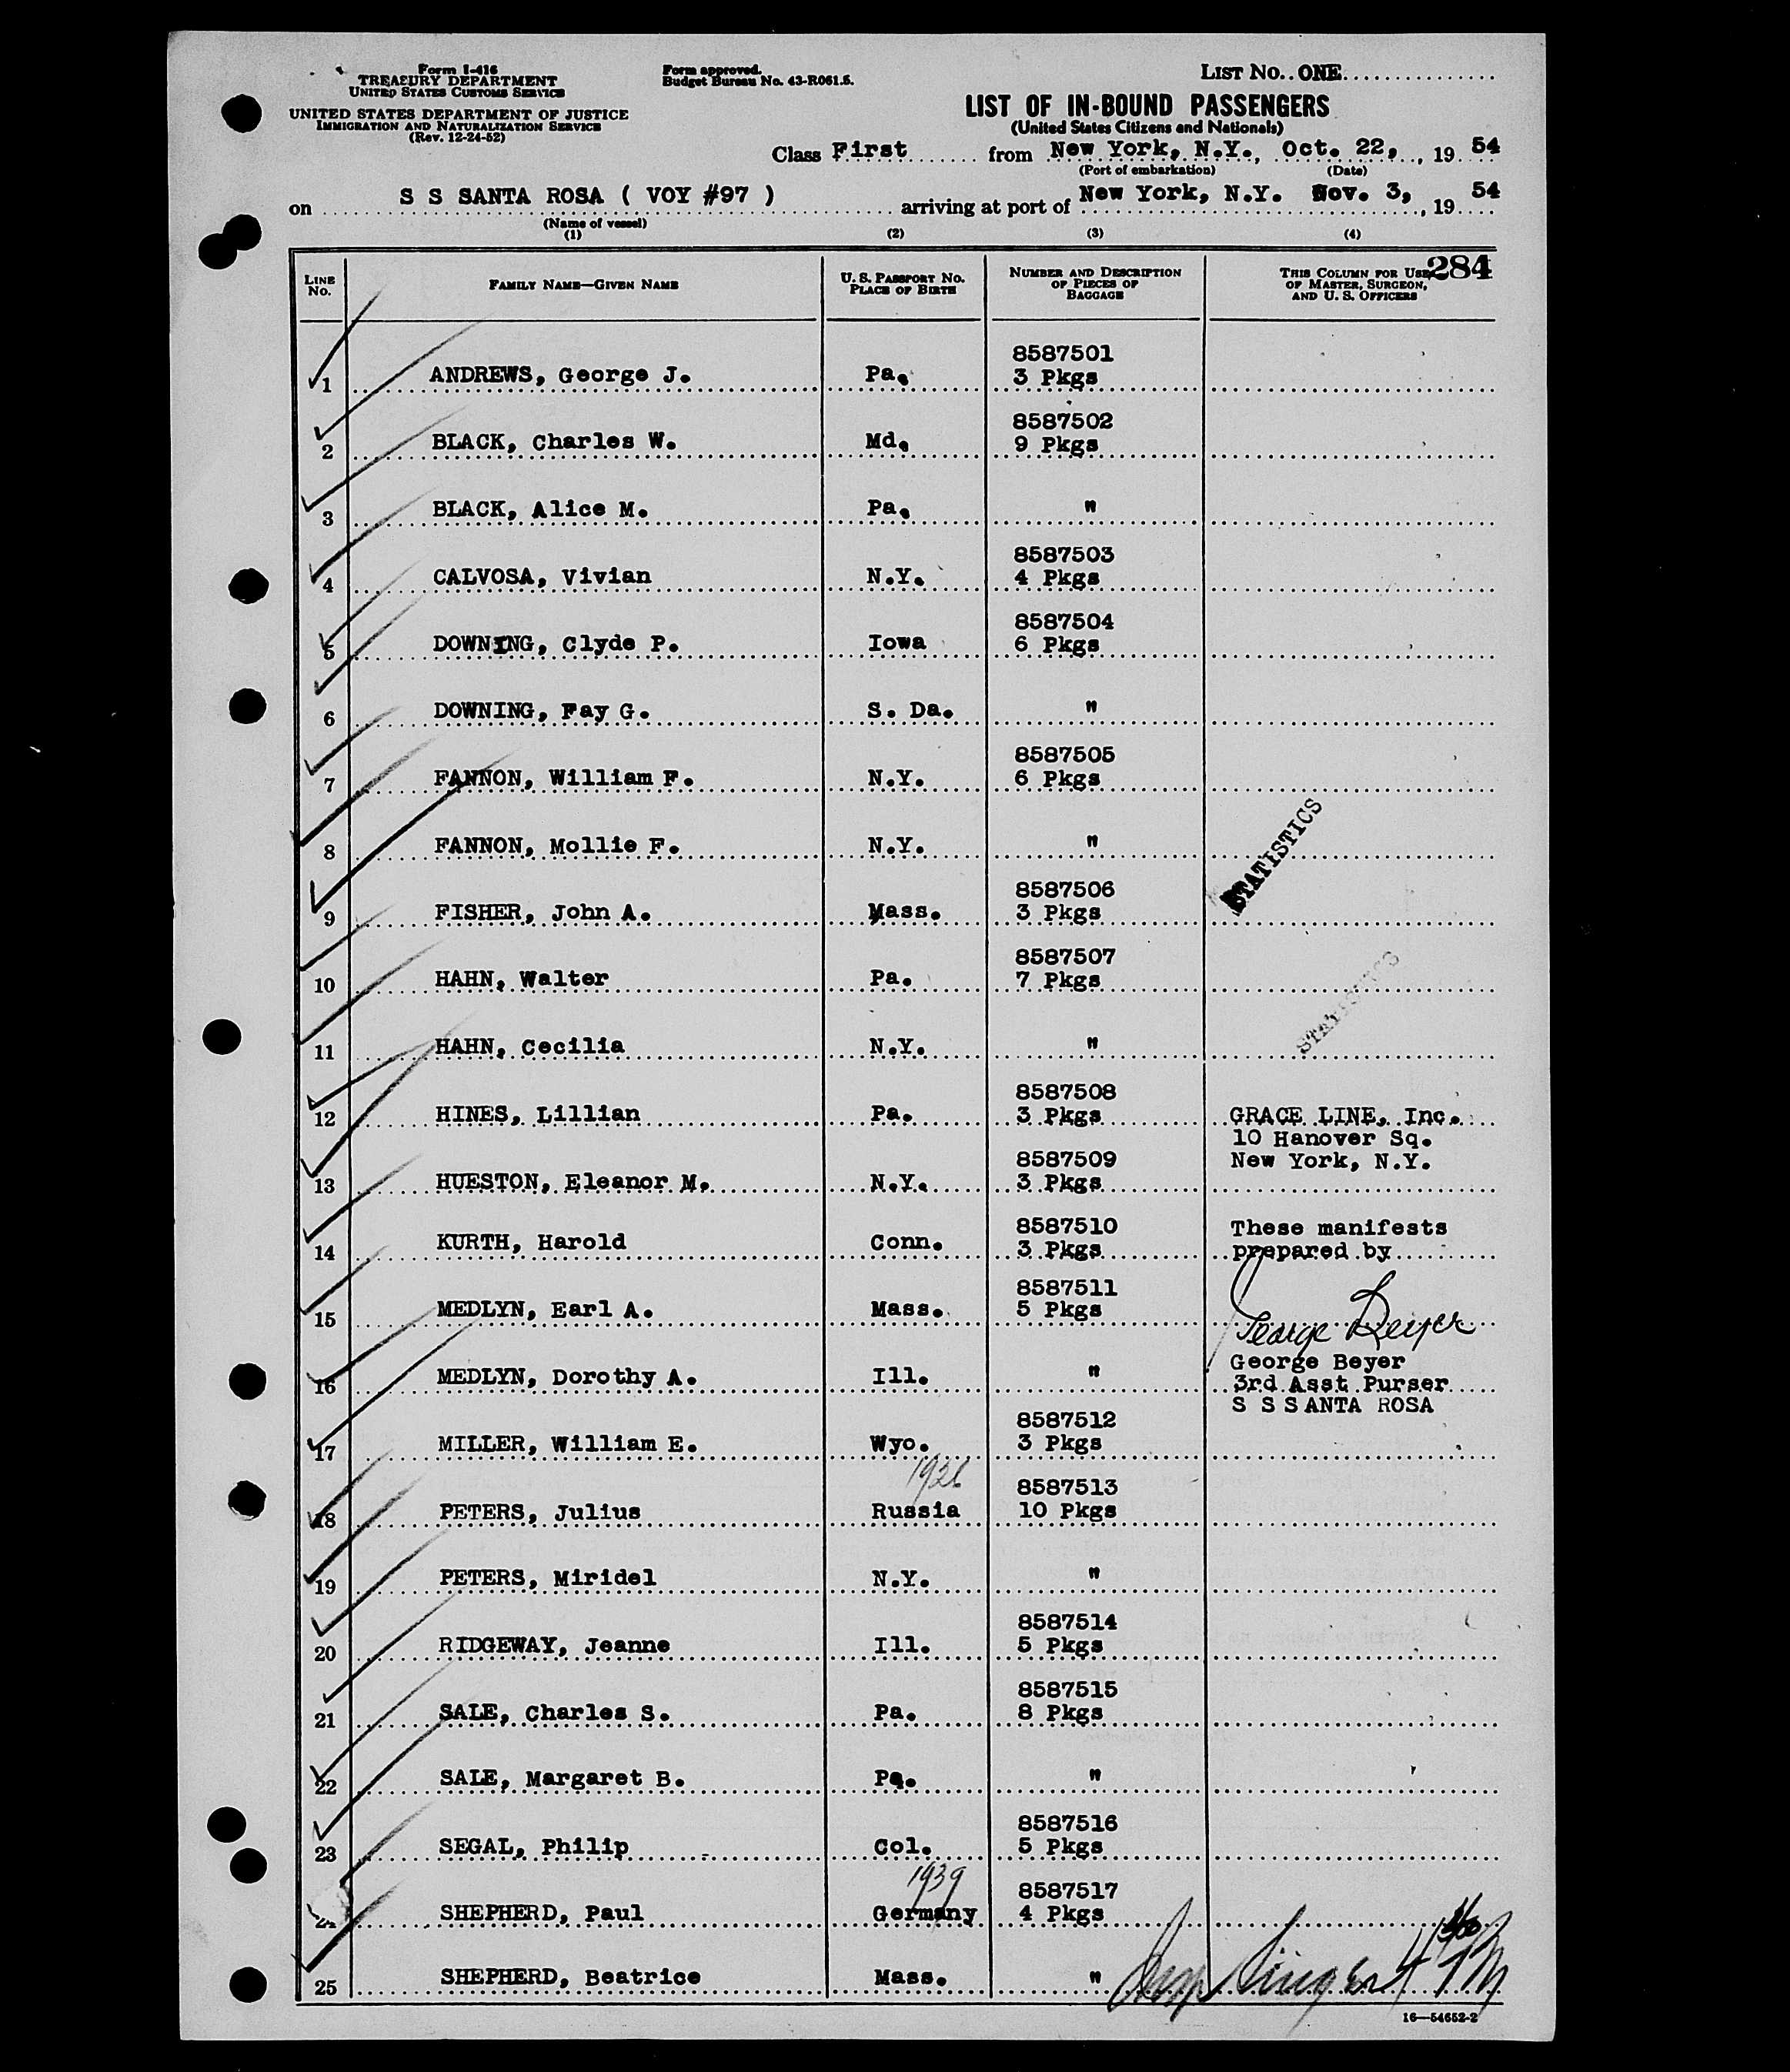 Form I-416
TREASURY DEPARTMENT
UNITED STATES CUSTOMS SERVICE
UNITED STATES DEPARTMENT OF JUSTICE
IMMIGRATION AND NATURALIZATION SERVICE
(Rev. 12-24-52)
Form approved.
Budget Bureau No. 43-R061.5.
LIST No. ONE
LIST OF IN-BOUND PASSENGERS
(United States Citizens and Nationals)
Class First from New York, N.Y., Oct. 22, , 19 54
(Port of embarkation) (Date)
on S S SANTA ROSA ( VOY #97 ) arriving at port of New York, N.Y. Nov. 3, , 19 54
(Name of vessel)
(1) (2) (3) (4)
284
LINE No.
FAMILY NAME—GIVEN NAME
U. S. PASSPORT No.
PLACE OF BIRTH
NUMBER AND DESCRIPTION
OF PIECES OF
BAGGAGE
THIS COLUMN FOR USE
OF MASTER, SURGEON,
AND U. S. OFFICERS
8587501
1 ANDREWS, George J. Pa. 3 Pkgs
8587502
2 BLACK, Charles W. Md. 9 Pkgs
3 BLACK, Alice M. Pa. "
8587503
4 CALVOSA, Vivian N.Y. 4 Pkgs
8587504
5 DOWNING, Clyde P. Iowa 6 Pkgs
6 DOWNING, Fay G. S. Da. "
8587505
7 FANNON, William F. N.Y. 6 Pkgs
8 FANNON, Mollie F. N.Y. "
STATISTICS
8587506
9 FISHER, John A. Mass. 3 Pkgs
8587507
10 HAHN, Walter Pa. 7 Pkgs
STATISTICS
11 HAHN, Cecilia N.Y. "
8587508
12 HINES, Lillian Pa. 3 Pkgs GRACE LINE, Inc.
10 Hanover Sq.
8587509 New York, N.Y.
13 HUESTON, Eleanor M. N.Y. 3 Pkgs
8587510 These manifests
14 KURTH, Harold Conn. 3 Pkgs prepared by
8587511
15 MEDLYN, Earl A. Mass. 5 Pkgs
George Beyer
George Beyer
16 MEDLYN, Dorothy A. Ill. " 3rd Asst Purser
S S SANTA ROSA
8587512
17 MILLER, William E. Wyo. 3 Pkgs
1926
8587513
18 PETERS, Julius Russia 10 Pkgs
19 PETERS, Miridel N.Y. "
8587514
20 RIDGEWAY, Jeanne Ill. 5 Pkgs
8587515
21 SALE, Charles S. Pa. 8 Pkgs
22 SALE, Margaret B. Pa. "
8587516
23 SEGAL, Philip Col. 5 Pkgs
1939
8587517
24 SHEPHERD, Paul Germany 4 Pkgs
25 SHEPHERD, Beatrice Mass. "
16—54652-2